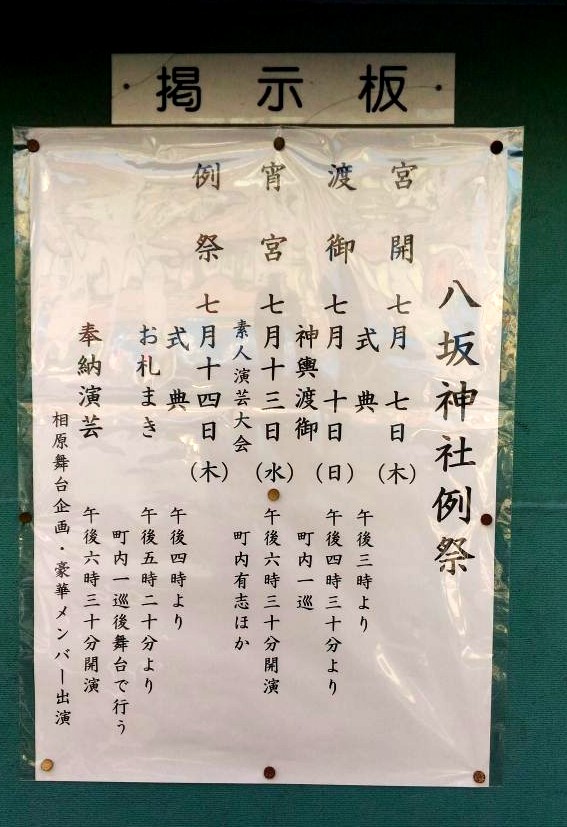 ・掲示板・
八坂神社例祭
宮開 七月 七日(木)
式典 午後三時より
渡御 七月 十日(日) 午後四時三十分より
神輿渡御 町内一巡
宵宮 七月十三日(水) 午後六時三十分開演
素人演芸大会 町内有志ほか
例祭 七月十四日(木)
式典 午後四時より
お札まき 午後五時二十分より
町内一巡後舞台で行う
奉納演芸 午後六時三十分開演
相原舞台企画・豪華メンバー出演